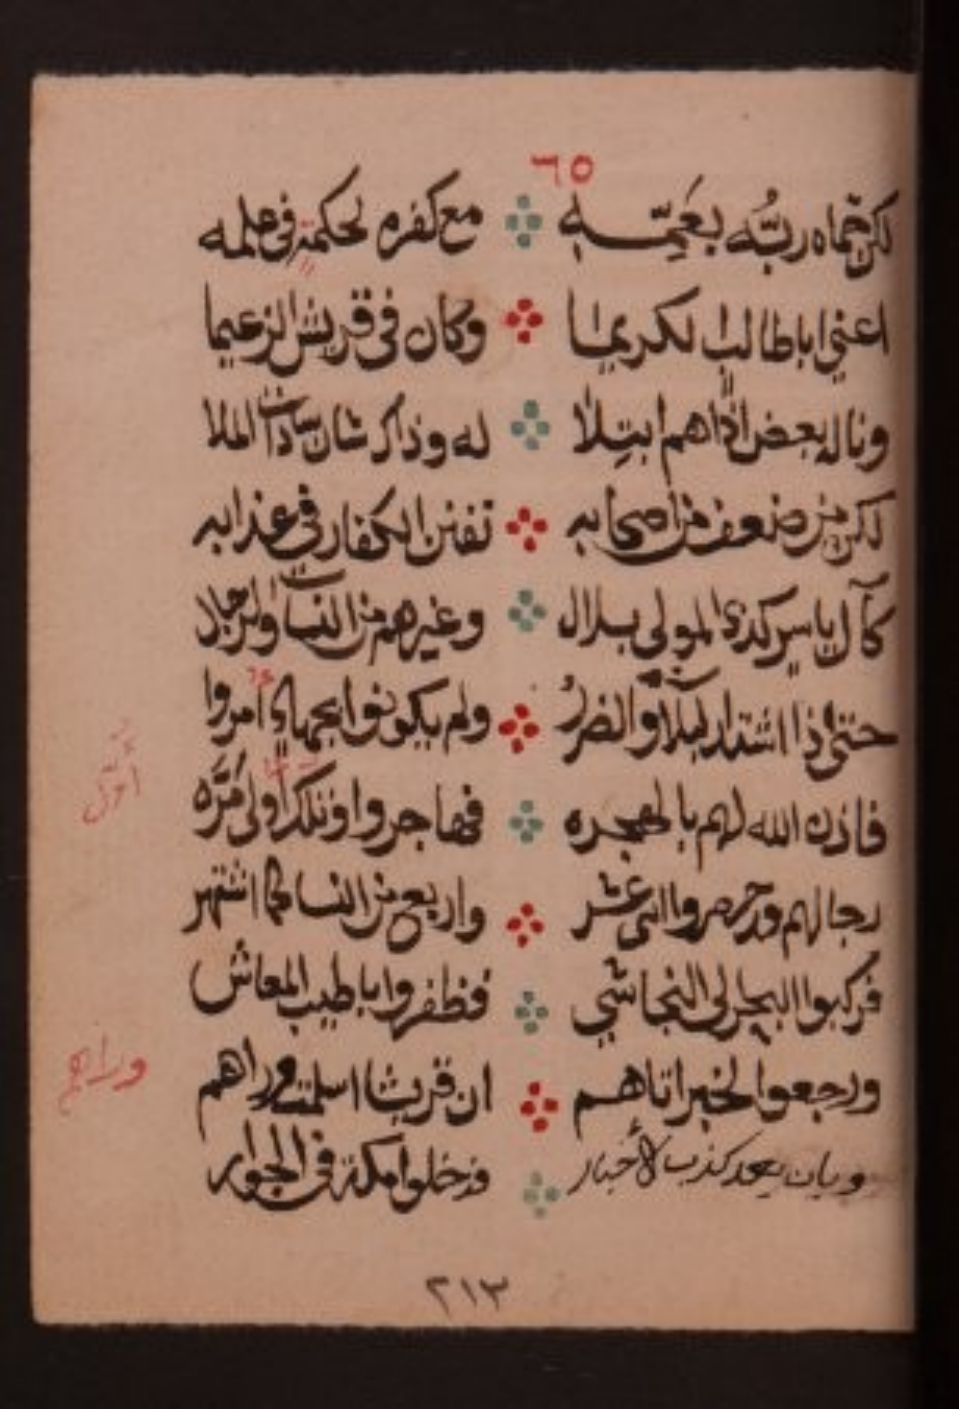 ٦٥
لكن حماه ربه بعمه مع كفره لحكمة في علمه
اعني اباطالب الكريما وكان في قريش الزعيما
وناله بعض اذاهم ابتلا له وذاك شان سادات الملا
لكن من ضعف من اصحابه تفنن الكفار في عذابه
كآل ياسر كذا المولى بلال وغيرهم من النسا والرجال
حتى اذا اشتد البلا والضرر ولم يكونوا بجهاد امروا
فاذن الله لهم بالهجره فهاجروا وتلك اولى مره
رجالهم قد حرروا اثني عشر واربع من النسا كما اشتهر
فركبوا البحر الى النجاشي فظفروا باطيب المعاش
ورجعوا لخبر اتاهم ان قريشا اسلمت وراهم
وراهم
وبان بعد كذب الأخبار فدخلوا مكة في الجوار
٢١٣